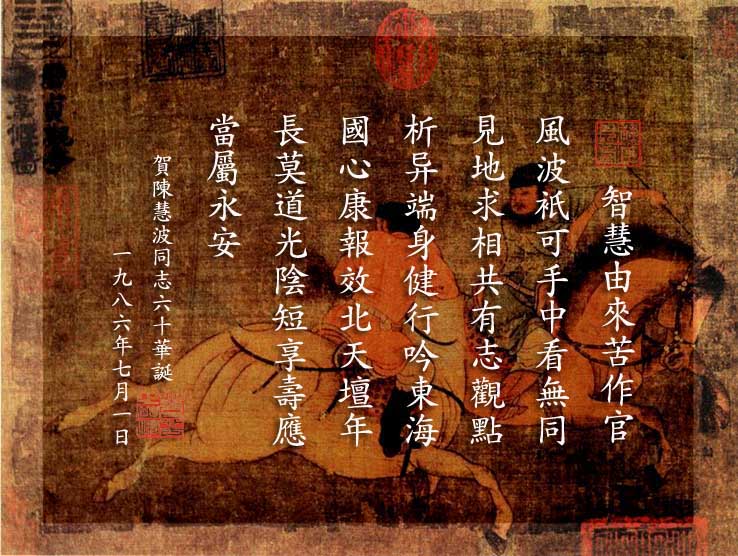 智慧由來苦作官
風波祇可手中看無同
見地求相共有志觀點
析异端身健行吟東海
國心康報效北天壇年
長莫道光陰短享壽應
當屬永安
賀陳慧波同志六十華誕
一九八六年七月一日